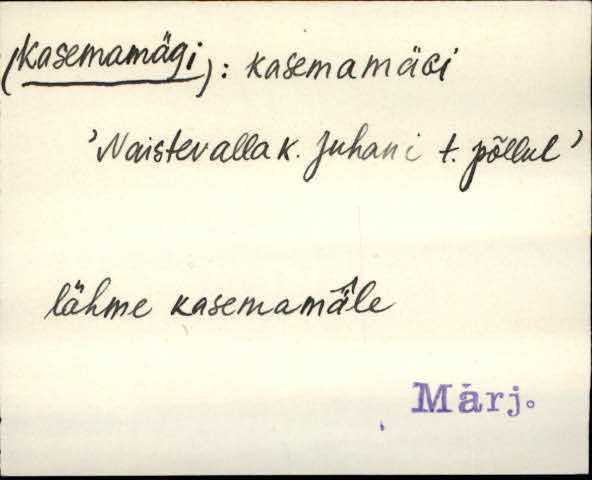 (Kasemamägi): kasemamäGi
'Naistevalla k. Juhani t. põllul'
lähme kasemamä̂le
Märj.